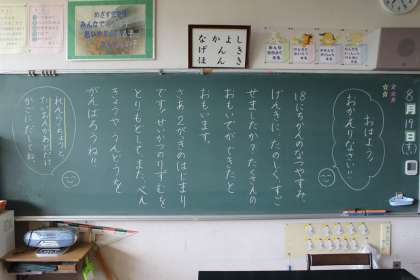 8月19日(木)
おはよう。
おかえりなさい!!
18にちかんのなつやすみ、
げんきに たのしく すご
せましたか？たくさんの
おもいでが できたと
おもいます。
さあ 2がきのはじまり
です！せいかつのリズムを
とりもどして、また、べん
きょうや うんどうを
がんばろうね!!
れんらくちょうと
たいおんかあどだけ
かごにだしてね。